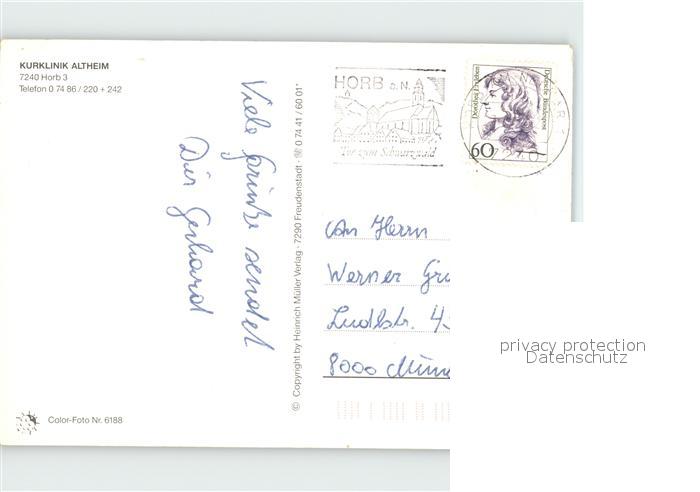 KURKLINIK ALTHEIM
7240 Horb 3
Telefon 0 74 86 / 220 + 242
Viele Grüße sendet
Dir Gerhard
© Copyright by Heinrich Müller Verlag · 7290 Freudenstadt · ☎ 0 74 41 / 60 01*
HORB a.N.
Tor zum Schwarzwald
Deutsche Bundespost
60
An Herrn
Werner Gru
Ludlstr. 4
8000 Mün
privacy protection
Datenschutz
Color-Foto Nr. 6188